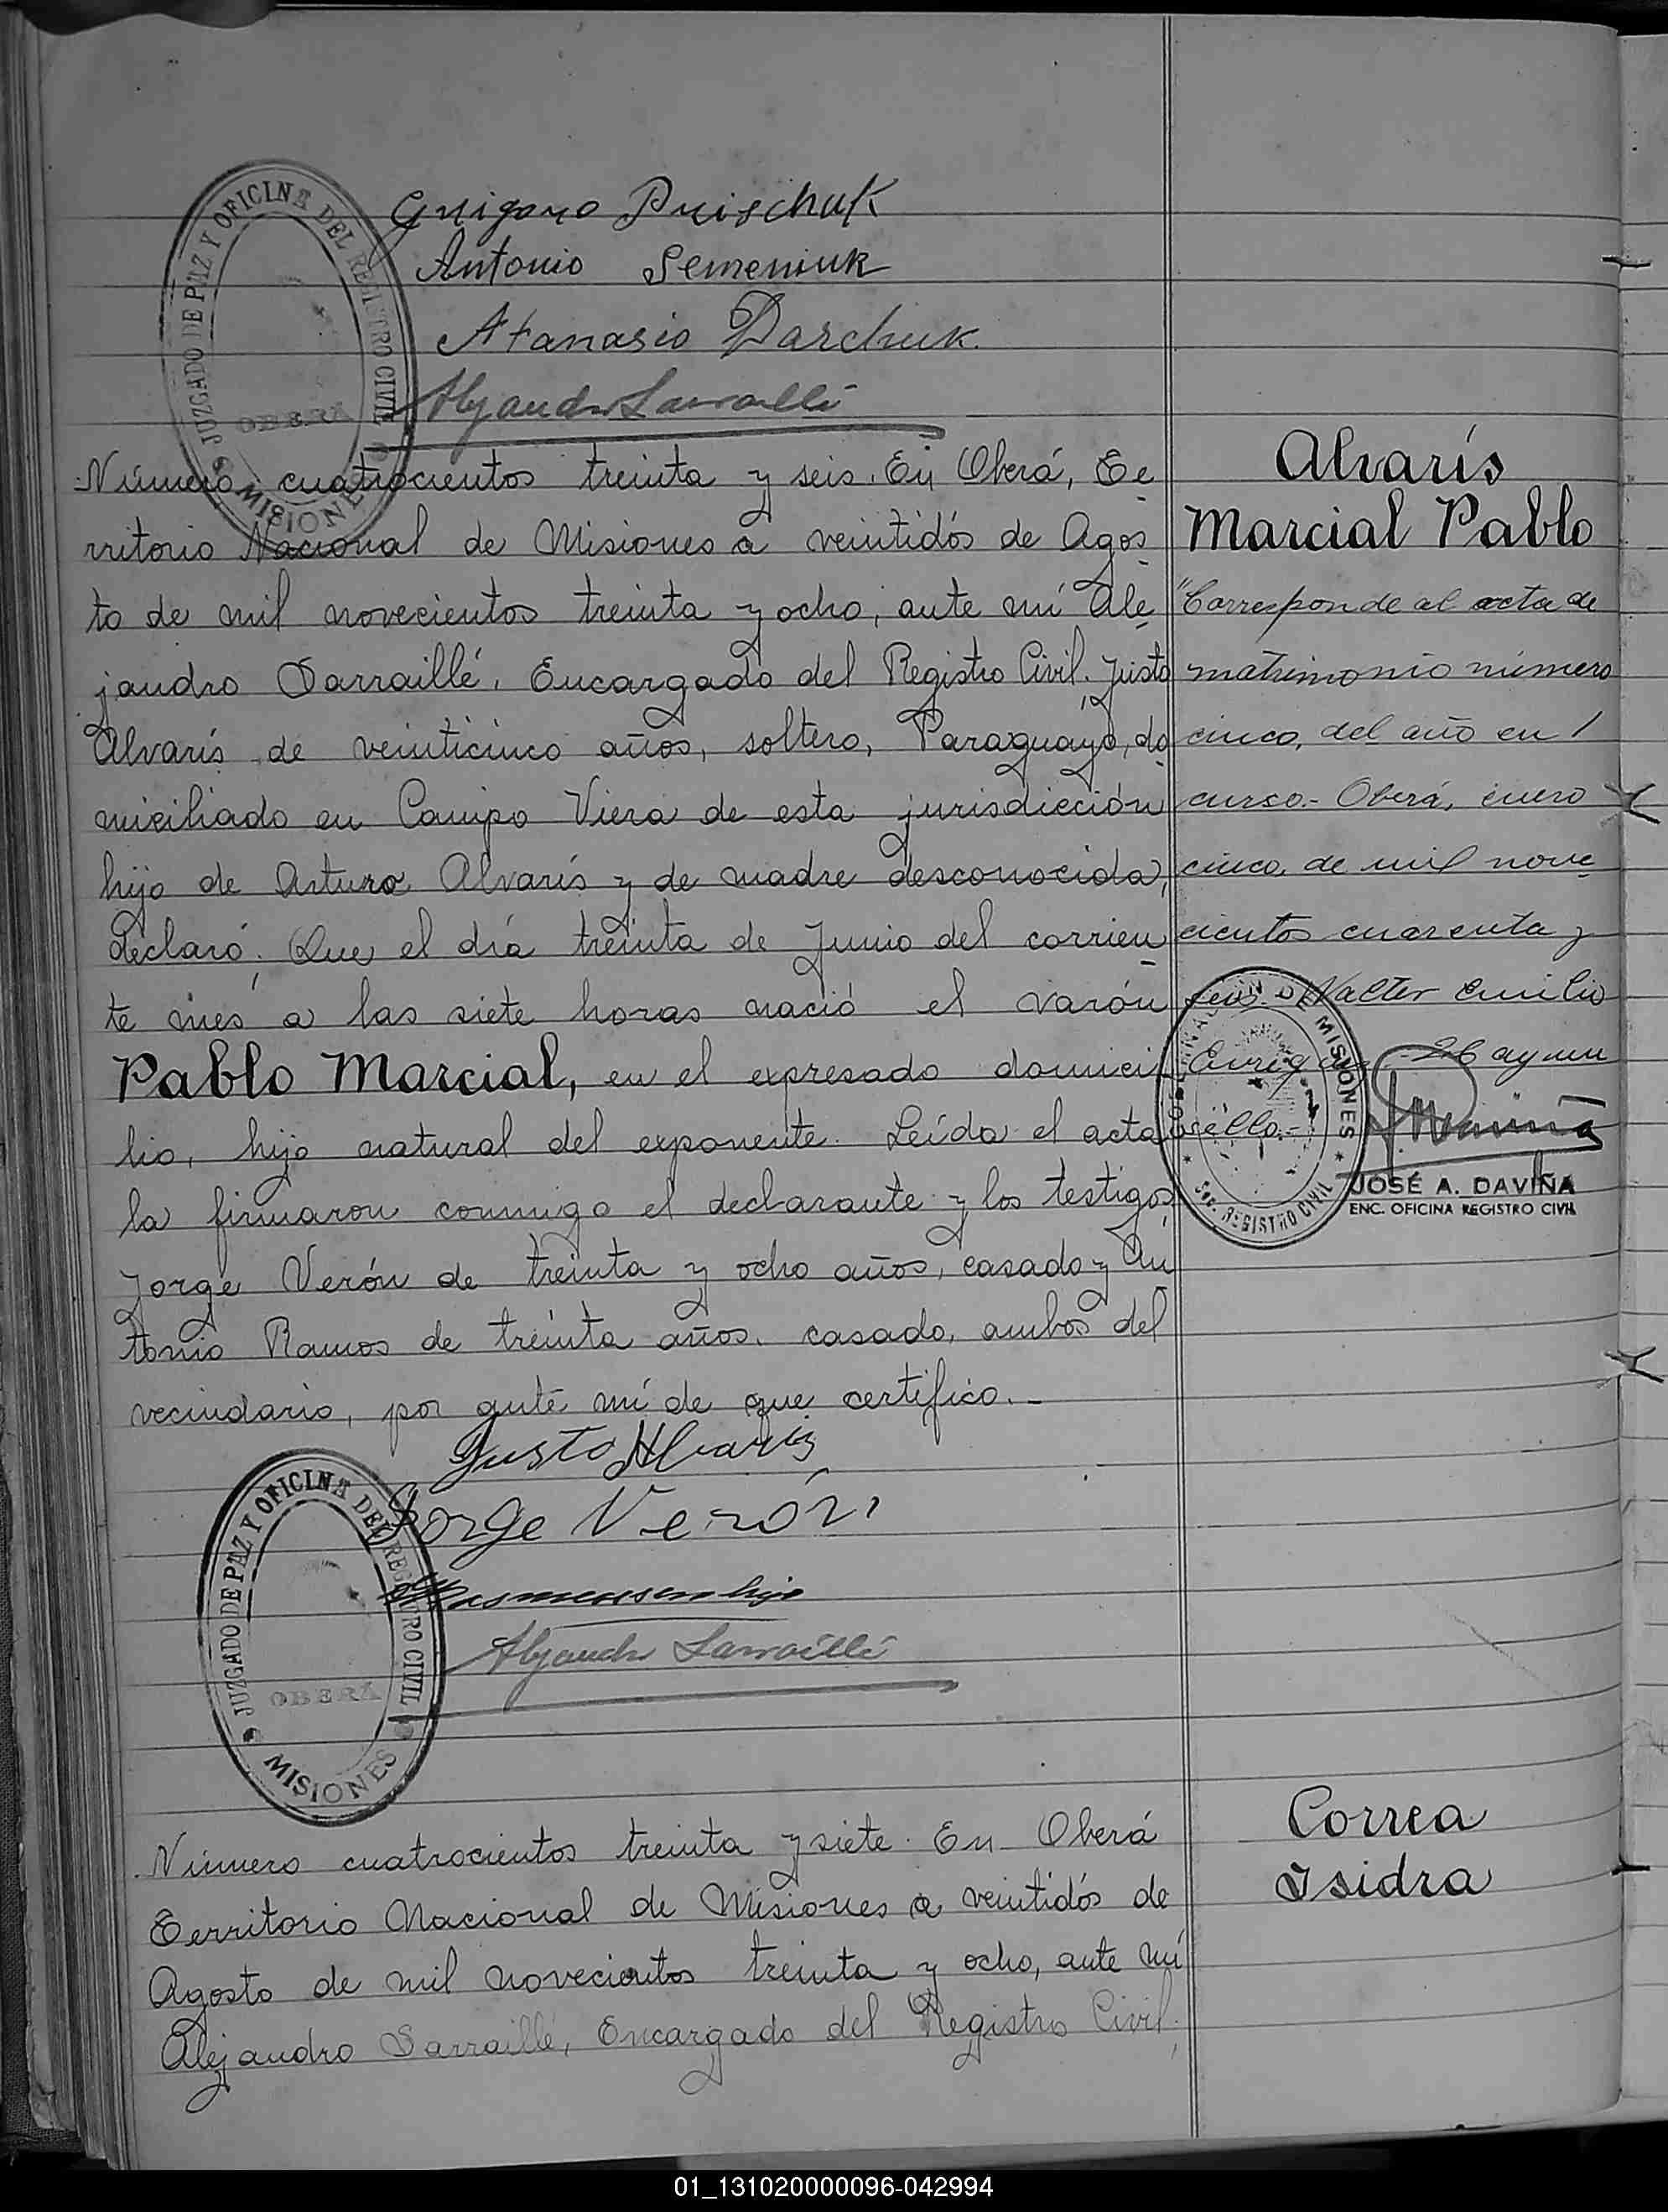 Grigorio Prischuk
Antonio Semeniuk
Atanasio Darchuk.
Alejandro Sarraillé
JUZGADO DE PAZ Y OFICINA DEL REGISTRO CIVIL
OBERÁ
MISIONES
Número cuatrocientos treinta y seis. En Oberá, Te
rritorio Nacional de Misiones a veintidós de Agos
to de mil novecientos treinta y ocho, ante mí Ale
jandro Sarraillé, Encargado del Registro Civil. Justo
Alvarís de veinticinco años, soltero, Paraguayo, do
miciliado en Campo Viera de esta jurisdicción
hijo de Arturo Alvarís y de madre desconocida,
declaró: Que el día treinta de Junio del corrien
te mes a las siete horas nació el varón
Pablo Marcial, en el expresado domici
lio, hijo natural del exponente. Leída el acta
la firmaron conmigo el declarante y los testigos
Jorge Verón de treinta y ocho años, casado y An
tonio Ramos de treinta años, casado, ambos del
vecindario, por ante mí de que certifico.-
Justo Alvarís
Jorge Verón
Alejandro Sarraillé
JUZGADO DE PAZ Y OFICINA DEL REGISTRO CIVIL
OBERÁ
MISIONES
Alvarís
Marcial Pablo
"Corresponde al acta de
matrimonio número
cinco, del año en /
curso.- Oberá, enero
cinco, de mil nove
cientos cuarenta y
Walter Emilio
sello.-
DE MISIONES
REGISTRO CIVIL
JOSÉ A. DAVIÑA
ENC. OFICINA REGISTRO CIVIL
Número cuatrocientos treinta y siete. En Oberá
Territorio Nacional de Misiones a veintidós de
Agosto de mil novecientos treinta y ocho, ante mí
Alejandro Sarraillé, Encargado del Registro Civil,
Correa
Isidra
01_131020000096-042994